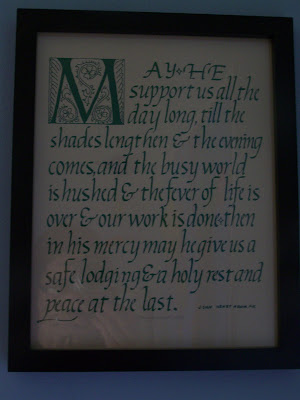 MAY HE
support us all the
day long, till the
shades lengthen & the evening
comes, and the busy world
is hushed & the fever of life is
over & our work is done then
in his mercy may he give us a
safe lodging & a holy rest and
peace at the last.